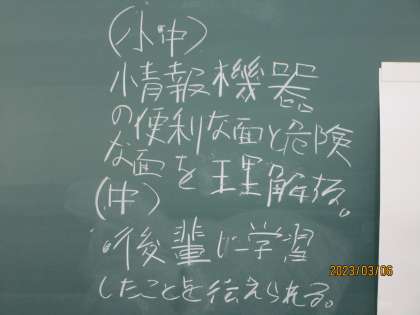 (小中)
小情報機器
の便利な面と危険
な面を理解する。
(中)
・後輩に学習
したことを伝えられる。
2023/03/06